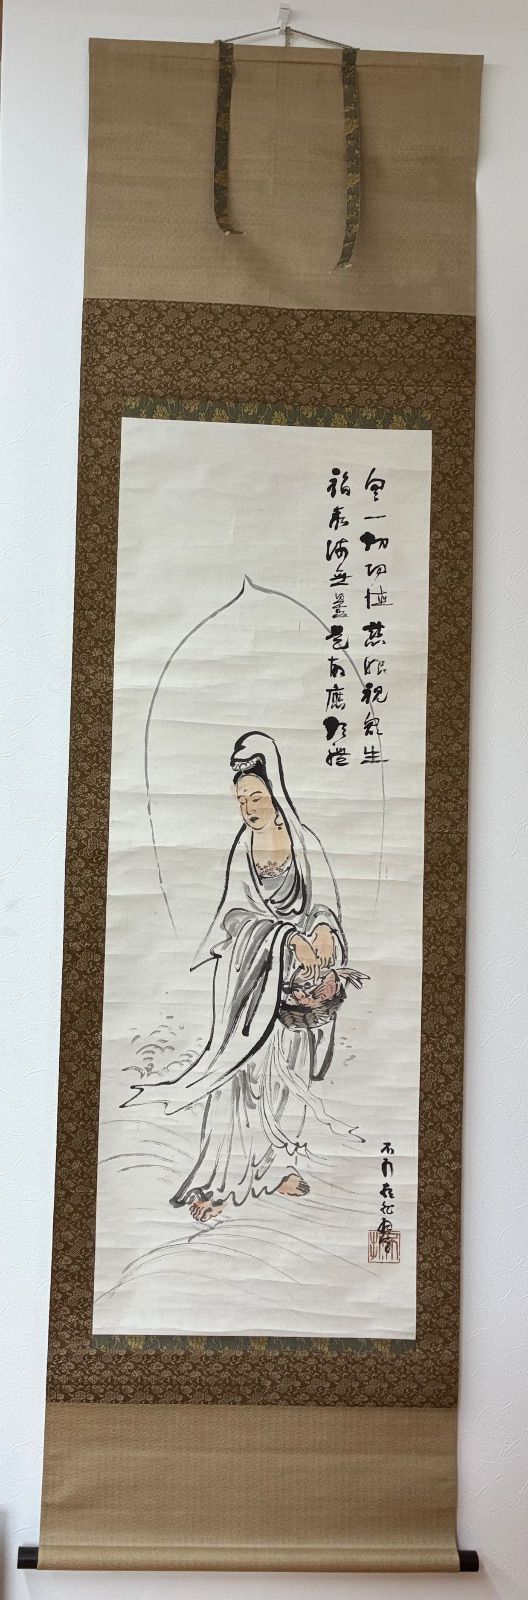 具一切功徳慈眼視衆生
福聚海無量是故應頂禮